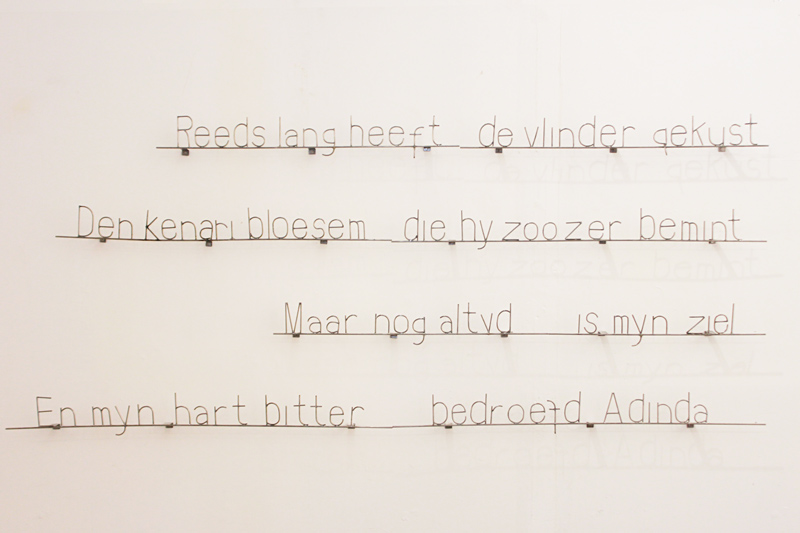 Reeds lang heeft de vlinder gekust
Den kenari bloesem die hy zoozer bemint
Maar nog altyd is myn ziel
En myn hart bitter bedroefd Adinda